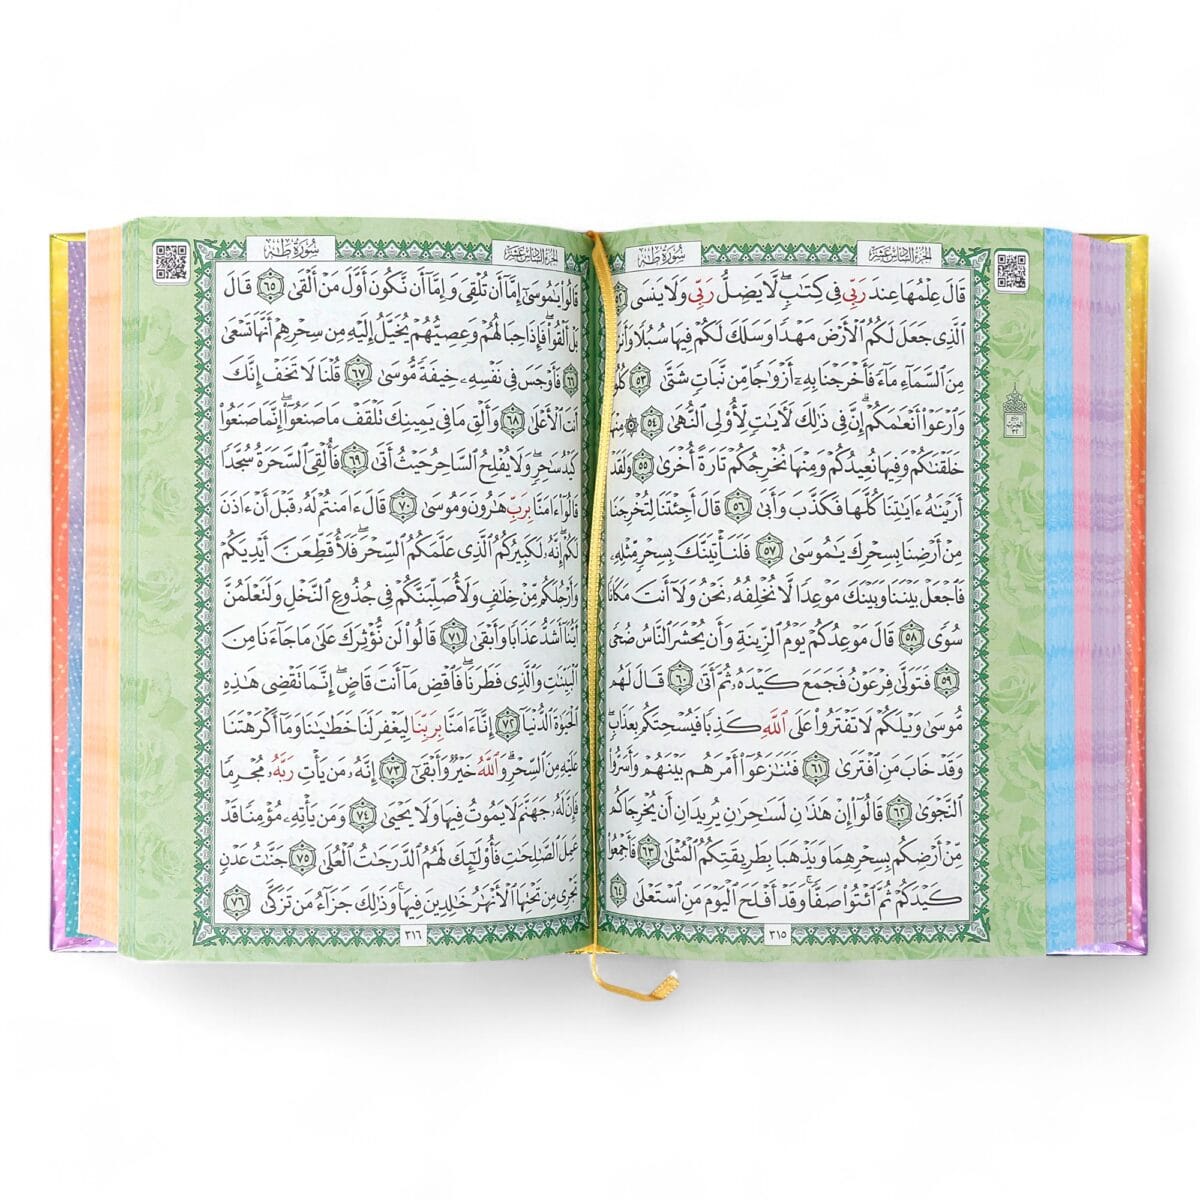 الجزء السادس عشر
سُورَةُ طه
قَالَ عِلْمُهَا عِندَ رَبِّى فِى كِتَٰبٍۖ لَّا يَضِلُّ رَبِّى وَلَا يَنسَى ٥٢
ٱلَّذِى جَعَلَ لَكُمُ ٱلْأَرْضَ مَهْدًا وَسَلَكَ لَكُمْ فِيهَا سُبُلًا
مِنَ ٱلسَّمَآءِ مَآءً فَأَخْرَجْنَا بِهِۦٓ أَزْوَٰجًا مِّن نَّبَاتٍ شَتَّىٰ ٥٣
وَٱرْعَوْا۟ أَنْعَٰمَكُمْۗ إِنَّ فِى ذَٰلِكَ لَءَايَٰتٍ لِّأُو۟لِى ٱلنُّهَىٰ ٥٤ ۞ مِنْهَا
خَلَقْنَٰكُمْ وَفِيهَا نُعِيدُكُمْ وَمِنْهَا نُخْرِجُكُمْ تَارَةً أُخْرَىٰ ٥٥ وَلَقَدْ
أَرَيْنَٰهُ ءَايَٰتِنَا كُلَّهَا فَكَذَّبَ وَأَبَىٰ ٥٦ قَالَ أَجِئْتَنَا لِتُخْرِجَنَا
مِنْ أَرْضِنَا بِسِحْرِكَ يَٰمُوسَىٰ ٥٧ فَلَنَأْتِيَنَّكَ بِسِحْرٍ مِّثْلِهِۦ
فَٱجْعَلْ بَيْنَنَا وَبَيْنَكَ مَوْعِدًا لَّا نُخْلِفُهُۥ نَحْنُ وَلَآ أَنتَ مَكَانًا
سُوًى ٥٨ قَالَ مَوْعِدُكُمْ يَوْمُ ٱلزِّينَةِ وَأَن يُحْشَرَ ٱلنَّاسُ ضُحًى
٥٩ فَتَوَلَّىٰ فِرْعَوْنُ فَجَمَعَ كَيْدَهُۥ ثُمَّ أَتَىٰ ٦٠ قَالَ لَهُم
مُّوسَىٰ وَيْلَكُمْ لَا تَفْتَرُوا۟ عَلَى ٱللَّهِ كَذِبًا فَيُسْحِتَكُم بِعَذَابٍۖ
وَقَدْ خَابَ مَنِ ٱفْتَرَىٰ ٦١ فَتَنَٰزَعُوٓا۟ أَمْرَهُم بَيْنَهُمْ وَأَسَرُّوا۟
ٱلنَّجْوَىٰ ٦٢ قَالُوٓا۟ إِنْ هَٰذَٰنِ لَسَٰحِرَٰنِ يُرِيدَانِ أَن يُخْرِجَاكُم
مِّنْ أَرْضِكُم بِسِحْرِهِمَا وَيَذْهَبَا بِطَرِيقَتِكُمُ ٱلْمُثْلَىٰ ٦٣ فَأَجْمِعُوا۟
كَيْدَكُمْ ثُمَّ ٱئْتُوا۟ صَفًّاۚ وَقَدْ أَفْلَحَ ٱلْيَوْمَ مَنِ ٱسْتَعْلَىٰ ٦٤
٣١٥
الجزء السادس عشر
سُورَةُ طه
قَالُوا۟ يَٰمُوسَىٰٓ إِمَّآ أَن تُلْقِىَ وَإِمَّآ أَن نَّكُونَ أَوَّلَ مَنْ أَلْقَىٰ ٦٥ قَالَ
بَلْ أَلْقُوا۟ۖ فَإِذَا حِبَالُهُمْ وَعِصِيُّهُمْ يُخَيَّلُ إِلَيْهِ مِن سِحْرِهِمْ أَنَّهَا تَسْعَىٰ
٦٦ فَأَوْجَسَ فِى نَفْسِهِۦ خِيفَةً مُّوسَىٰ ٦٧ قُلْنَا لَا تَخَفْ إِنَّكَ
أَنتَ ٱلْأَعْلَىٰ ٦٨ وَأَلْقِ مَا فِى يَمِينِكَ تَلْقَفْ مَا صَنَعُوٓا۟ۖ إِنَّمَا صَنَعُوا۟
كَيْدُ سَٰحِرٍۖ وَلَا يُفْلِحُ ٱلسَّاحِرُ حَيْثُ أَتَىٰ ٦٩ فَأُلْقِىَ ٱلسَّحَرَةُ سُجَّدًا
قَالُوٓا۟ ءَامَنَّا بِرَبِّ هَٰرُونَ وَمُوسَىٰ ٧٠ قَالَ ءَامَنتُمْ لَهُۥ قَبْلَ أَنْ ءَاذَنَ
لَكُمْۖ إِنَّهُۥ لَكَبِيرُكُمُ ٱلَّذِى عَلَّمَكُمُ ٱلسِّحْرَۖ فَلَأُقَطِّعَنَّ أَيْدِيَكُمْ
وَأَرْجُلَكُم مِّنْ خِلَٰفٍ وَلَأُصَلِّبَنَّكُمْ فِى جُذُوعِ ٱلنَّخْلِ وَلَتَعْلَمُنَّ
أَيُّنَآ أَشَدُّ عَذَابًا وَأَبْقَىٰ ٧١ قَالُوا۟ لَن نُّؤْثِرَكَ عَلَىٰ مَا جَآءَنَا مِنَ
ٱلْبَيِّنَٰتِ وَٱلَّذِى فَطَرَنَاۖ فَٱقْضِ مَآ أَنتَ قَاضٍۖ إِنَّمَا تَقْضِى هَٰذِهِ
ٱلْحَيَوٰةَ ٱلدُّنْيَآ ٧٢ إِنَّآ ءَامَنَّا بِرَبِّنَا لِيَغْفِرَ لَنَا خَطَٰيَٰنَا وَمَآ أَكْرَهْتَنَا
عَلَيْهِ مِنَ ٱلسِّحْرِۗ وَٱللَّهُ خَيْرٌ وَأَبْقَىٰٓ ٧٣ إِنَّهُۥ مَن يَأْتِ رَبَّهُۥ مُجْرِمًا
فَإِنَّ لَهُۥ جَهَنَّمَ لَا يَمُوتُ فِيهَا وَلَا يَحْيَىٰ ٧٤ وَمَن يَأْتِهِۦ مُؤْمِنًا قَدْ
عَمِلَ ٱلصَّٰلِحَٰتِ فَأُو۟لَٰٓئِكَ لَهُمُ ٱلدَّرَجَٰتُ ٱلْعُلَىٰ ٧٥ جَنَّٰتُ عَدْنٍ
تَجْرِى مِن تَحْتِهَا ٱلْأَنْهَٰرُ خَٰلِدِينَ فِيهَاۚ وَذَٰلِكَ جَزَآءُ مَن تَزَكَّىٰ ٧٦
٣١٦